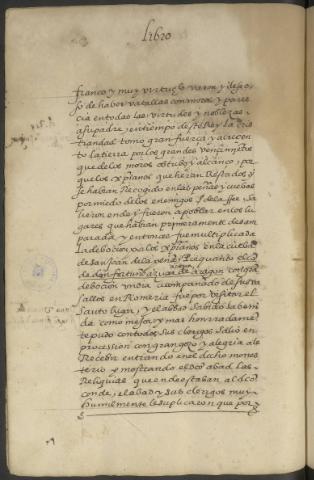 Libro
franco y muy virtuoso varon y deseo
so de haber vatallas con moros y pares
cia en todas las virtudes y noblezas a
su padre, en tiempo deste Rey la xp̄ia
tiandad tomo gran fuerça y acrecen
to la tierra por los grandes vencimientos
que de los moros obtubo y alcanço, por
que los xp̄ianos que heran Restados y
se habian Recogido en las peñas y cuebas
por miedo de los enemigos de la fee, sa
lieron ende y fueron a poblar en los lu
gares que habian primeramente desam
parado, y entonces fue multiplicada
la debocion a los xp̄ianos en la cueba
de san juan de la peña. Por quanto el co
de don fortuño de aragon con gran
debocion vino acompañado de
salleros en Romeria fue por visitar el
Santo lugar, y el abbad sabido su beni
da como mejor y mas honrradamente
pudo con todos sus clerigos salio en
procession con gran gozo y alegria a le
Recebir entrando en el dicho mones
terio y mostrando el dicho abad las
Reliquias que ende estaban al dicho
conde, el abad y sus clerigos muy
humilmente le suplicaron que por